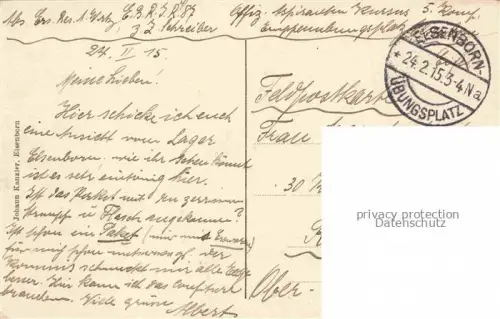 Abs Ers. Res. A. E. B. R. I. R 87
z. Z. Schreiber
24. II 15.
Offiz. Aspiranten Kursus 5. Komp.
Truppenübungsplatz
ELSENBORN-
* 24.2.15.3-4Na
ÜBUNGSPLATZ
Meine Lieben!
Feldpostkarte
Hier schicke ich euch
eine Ansicht vom Lager
Elsenborn. wie ihr sehen könnt
ist es sehr eintönig hier.
Ist das Packet mit
Strumpf u Flasch angekommen?
Ist schon ein Paket (
für mich schon unterwegs. der
schmeckt mir alle Tage
besser. Hier kann ich das
brauchen. Viele grüsse
Albert
Frau
30
Ober-
Johann Kanzler, Elsenborn
privacy protection
Datenschutz